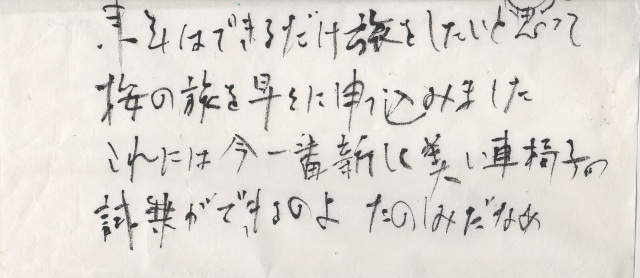 来年はできるだけ旅をしたいと思って
梅の旅を早々に申し込みました
これには今一番新しく美しい車椅子の
試乗ができるのよ たのしみだなあ